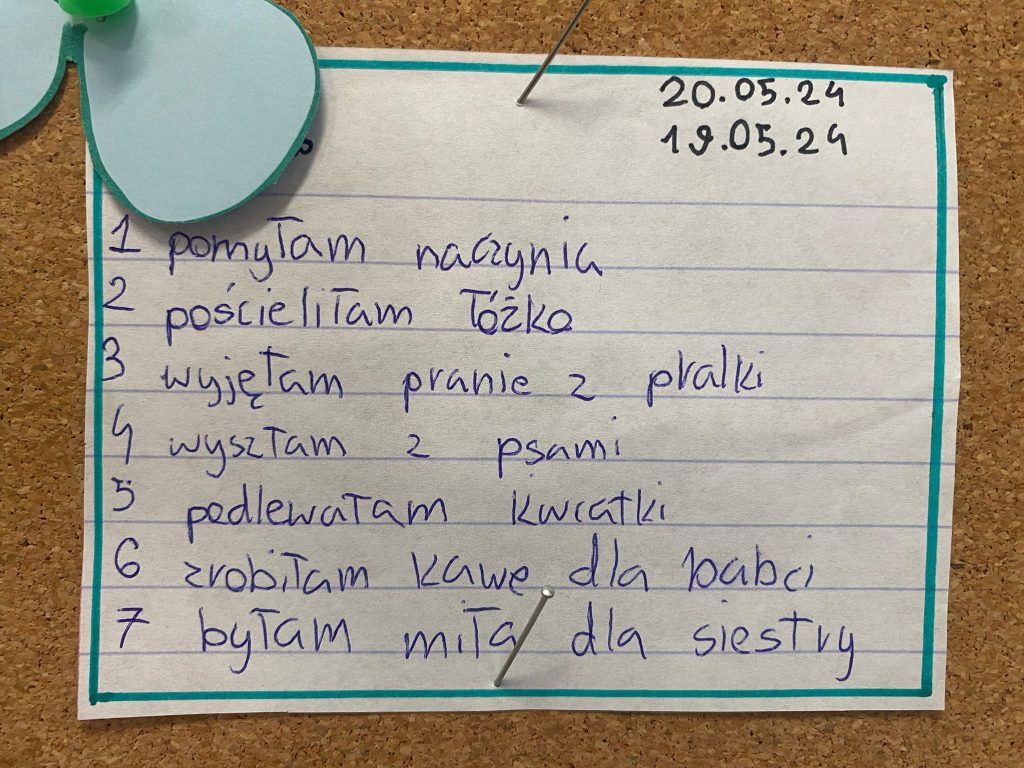 20.05.24
19.05.24
1 pomyłam naczynia
2 pościeliłam łóżko
3 wyjęłam pranie z pralki
4 wyszłam z psami
5 podlewałam kwiatki
6 zrobiłam kawe dla babci
7 byłam miła dla siestry